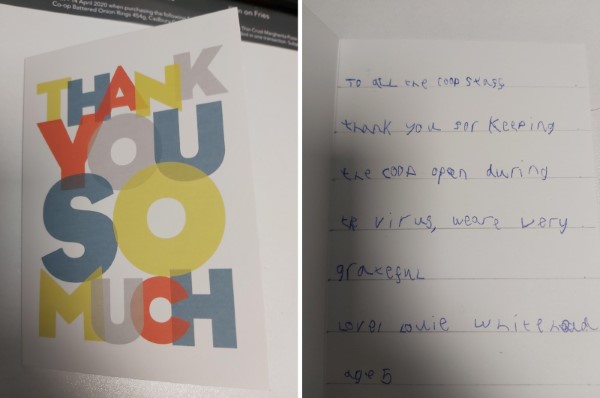 14 April 2020 when purchasing the following
Co-op Battered Onion Rings
on Fries
THANK
YOU
SO
MUCH
To all the coop staff
thank you for Keeping
the coop open during
the virus, weare very
grateful
age 5